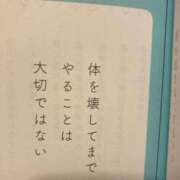 体を壊してまで
やることは
大切ではない